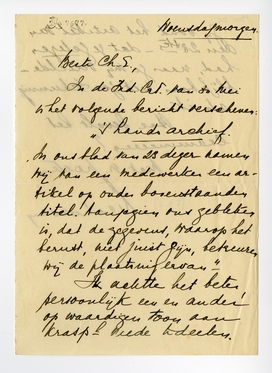 Woensdagmorgen
Beste Ch. E,
In de Ind. Crt. van 30 Mei
is het volgende bericht verschenen:
"'s Lands archief.
In ons blad van 28 dezer namen
wij van een medewerker een ar-
tikel op onder bovenstaanden
titel. Aangezien ons gebleken
is, dat de gegevens, waarop het
berust, niet juist zijn, betreuren
wij de plaatsing ervan"
Ik achtte het beter,
persoonlijk een en ander
op waardigen toon aan
te deelen.